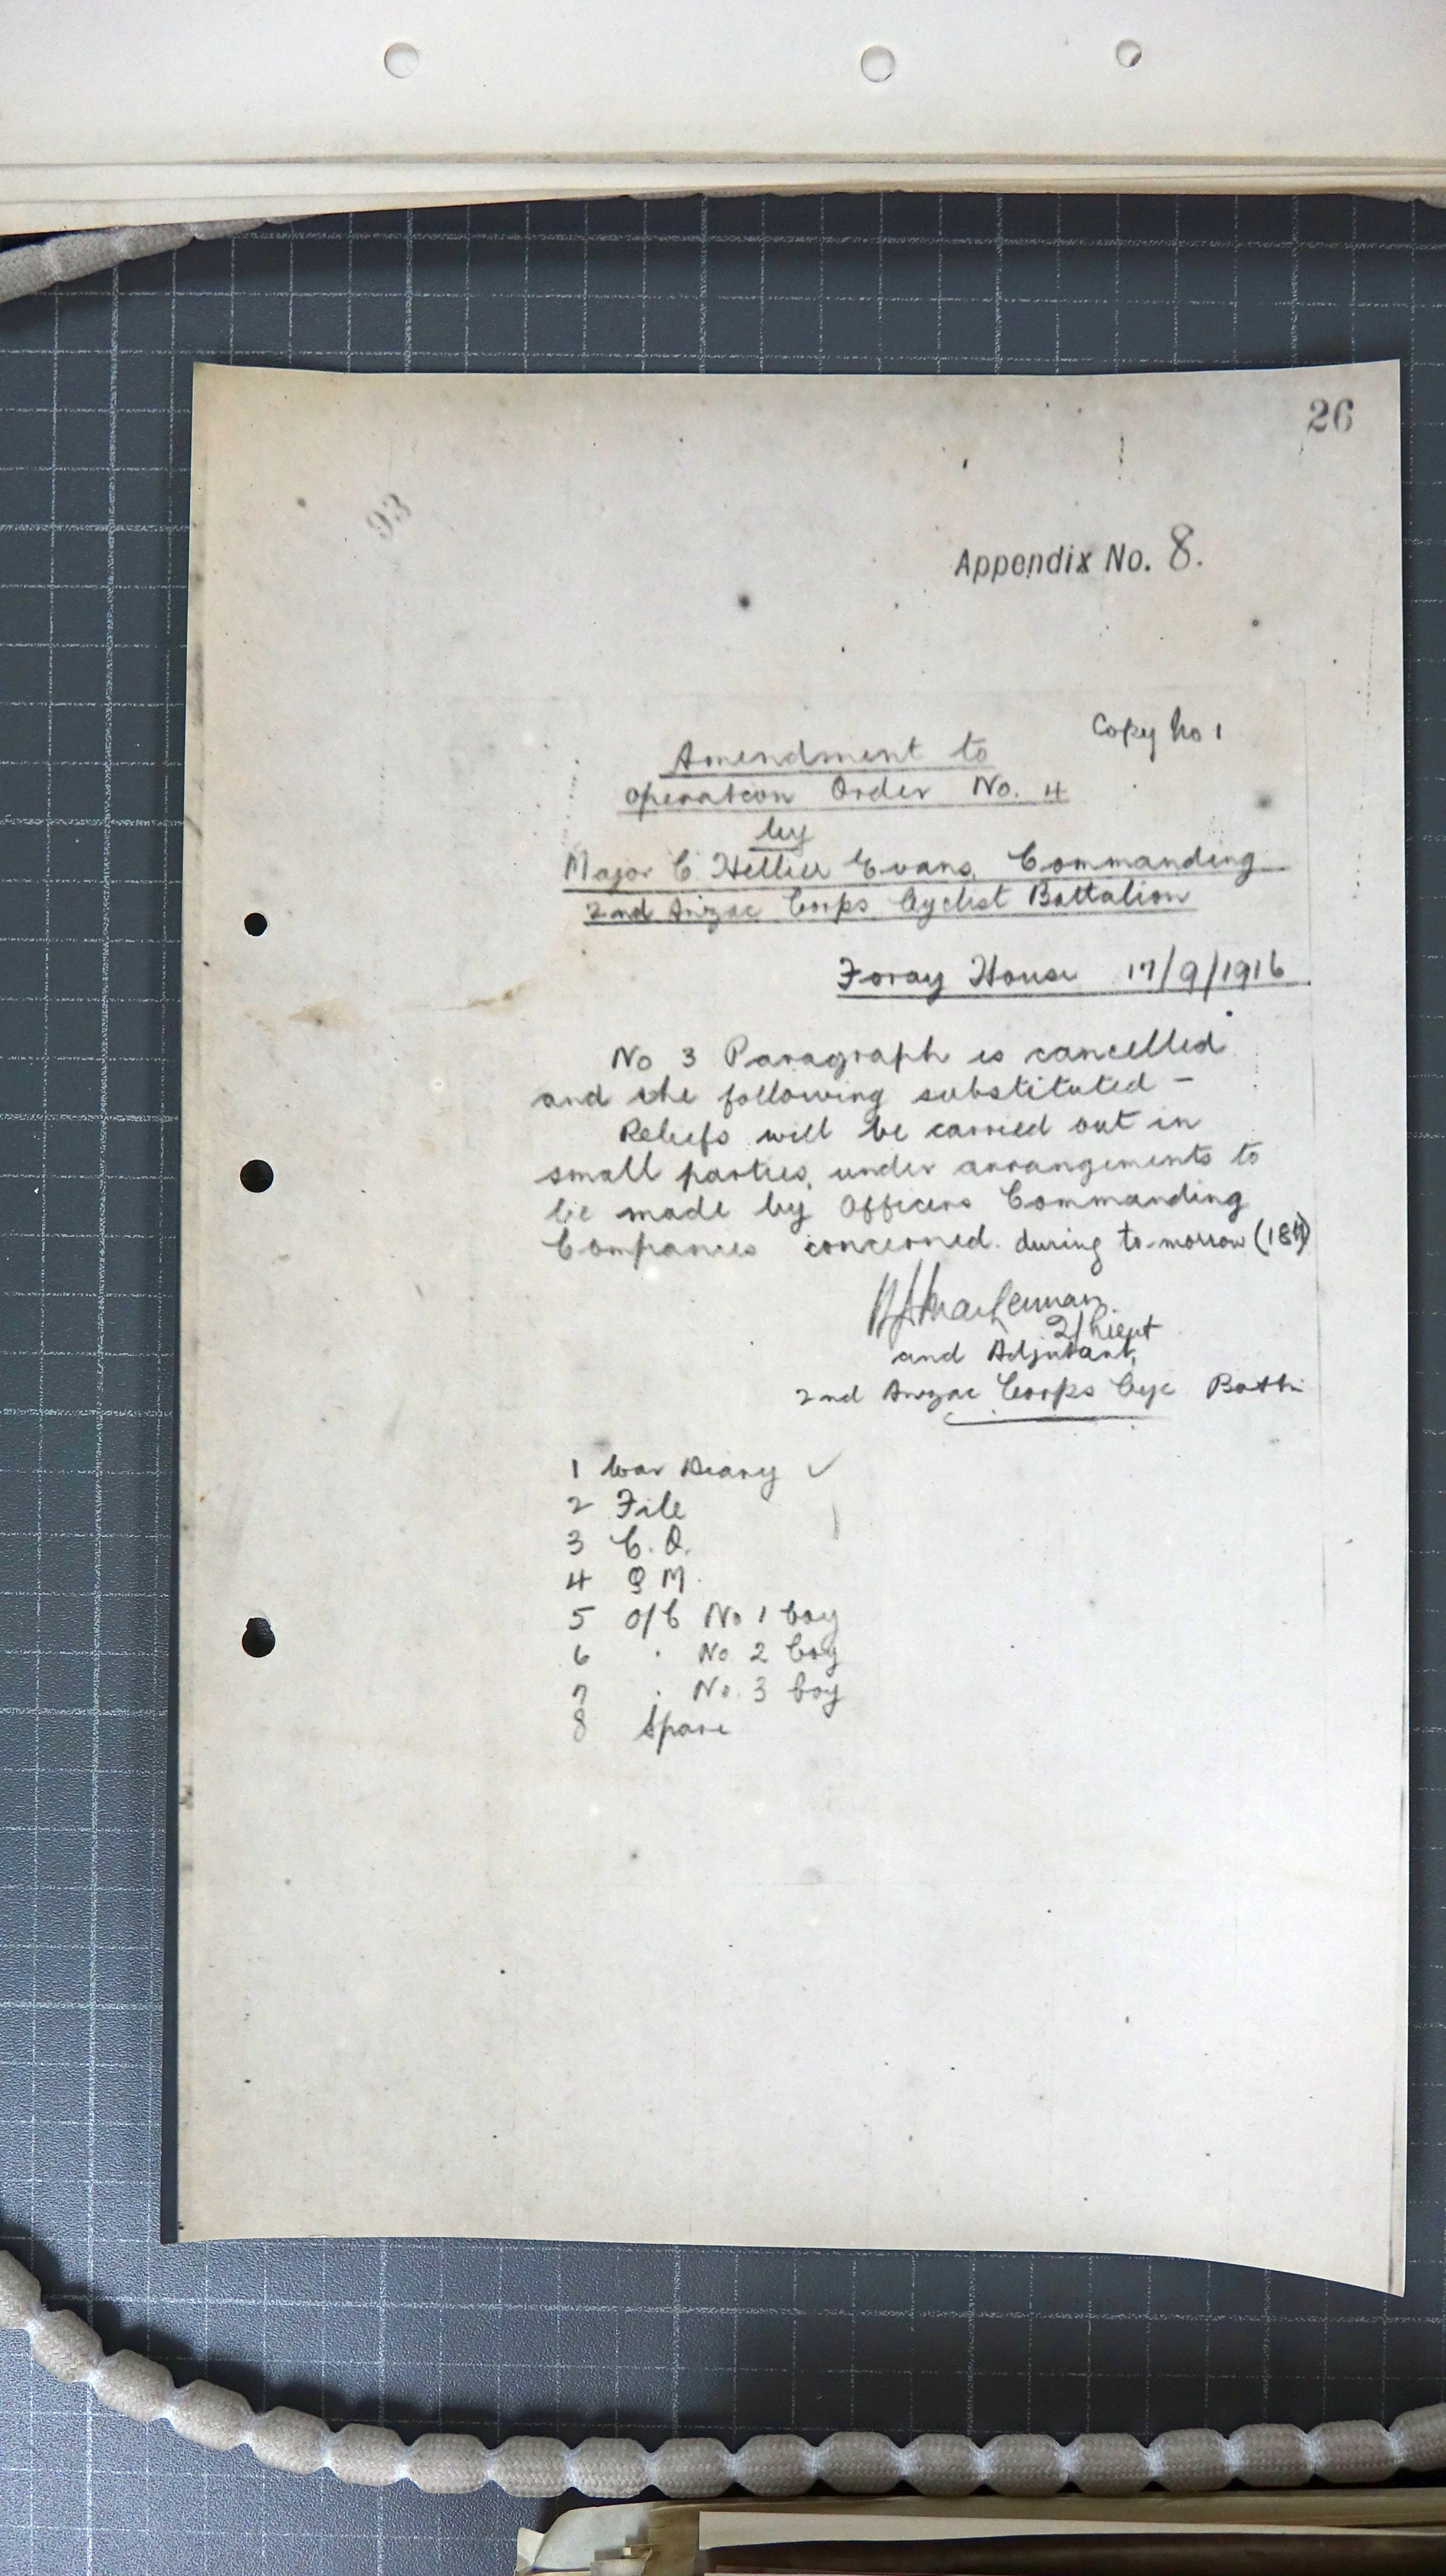 26
93
Appendix No. 8.
Copy No 1
Amendment to
Operation Order No. 4
by
Major C. Hellier Evans, Commanding
2nd Anzac Corps Cyclist Battalion
Foray House 17/9/1916
No 3 Paragraph is cancelled
and the following substituted –
Reliefs will be carried out in
small parties, under arrangements to
be made by Officers Commanding
Companies concerned. during to-morrow (18th)
2/Lieut
and Adjutant,
2nd Anzac Corps Cyc Battn
1 War Diary ✓
2 File
3 C.O.
4 Q M.
5 O/C No 1 Coy
6 " No. 2 Coy
7 " No. 3 Coy
8 Spare